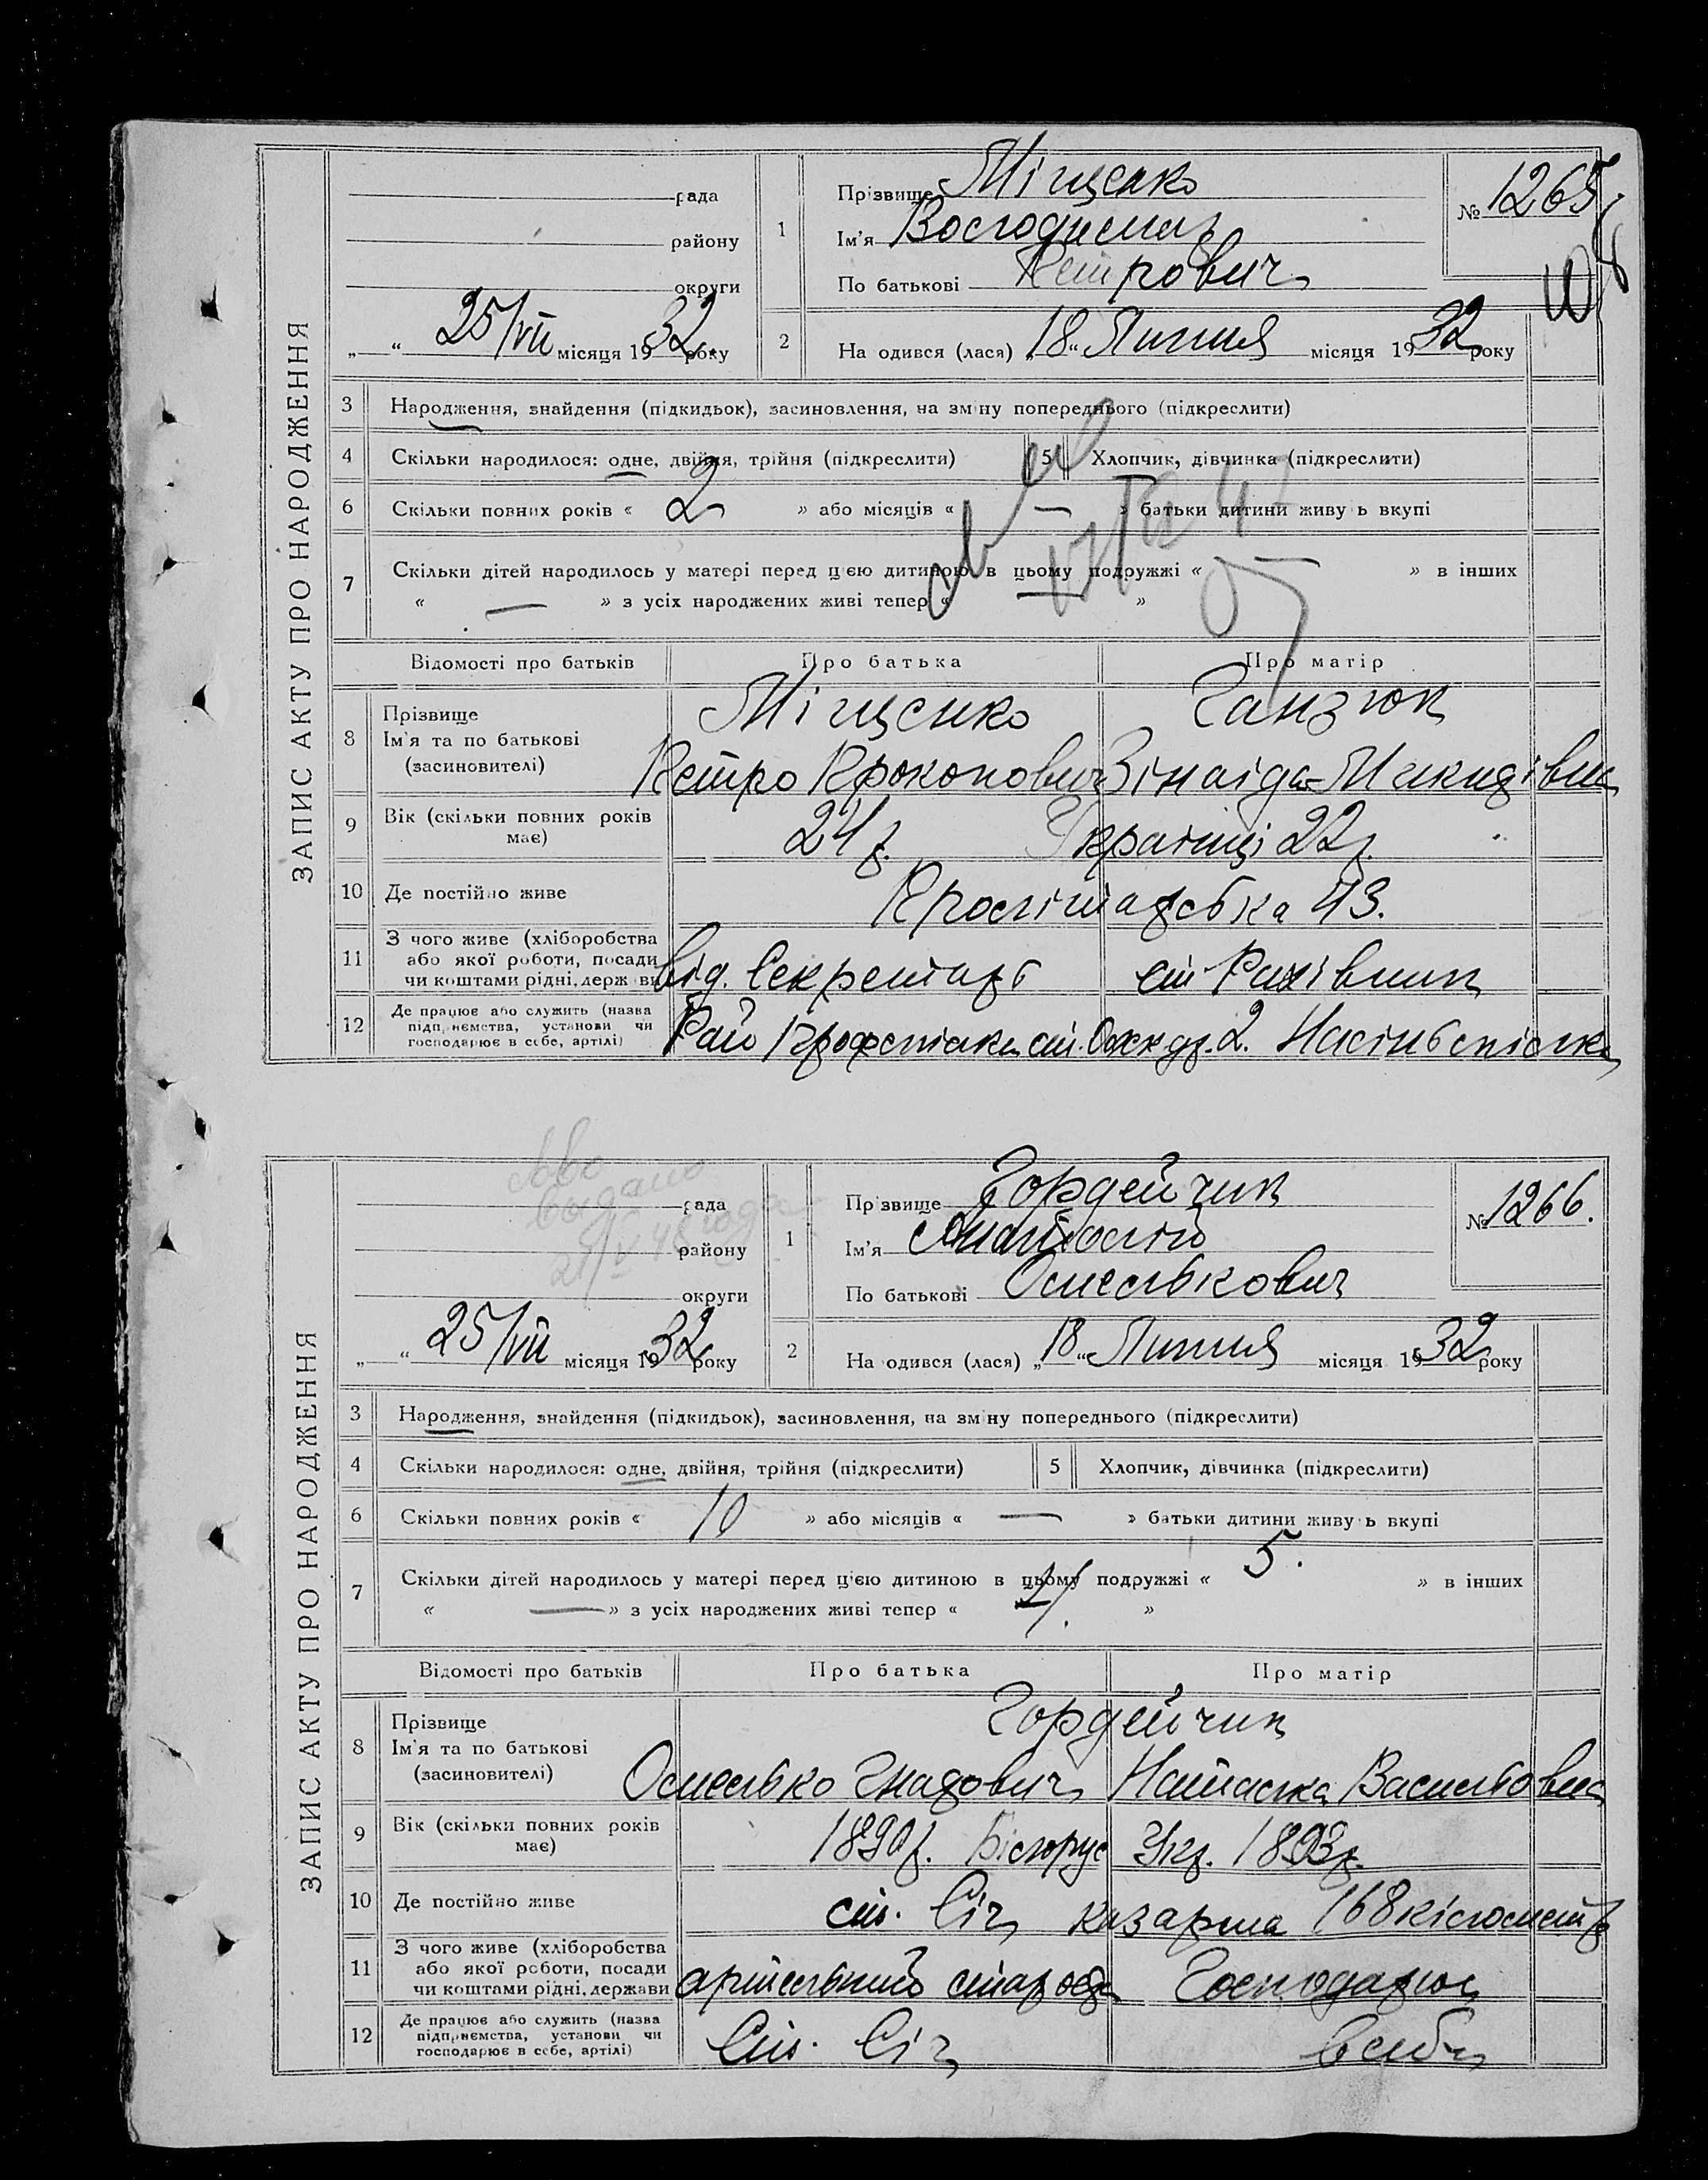 ЗАПИС АКТУ ПРО НАРОДЖЕННЯ
рада
району
округи
„ “ 25/VII місяця 1932 року
1
Прізвище Міщенко
Ім'я Володимир
По батькові Петрович
№ 1265
2
На одився (лася) „18“ Липня місяця 1932 року
3 Народження, знайдення (підкидьок), засиновлення, на зміну попереднього (підкреслити)
4 Скільки народилося: одне, двійня, трійня (підкреслити)
5 Хлопчик, дівчинка (підкреслити)
6 Скільки повних років « 2 » або місяців « — » батьки дитини живу ь вкупі
7 Скільки дітей народилось у матері перед цією дитиною в цьому подружжі « » в інших
« — » з усіх народжених живі тепер « — »
Відомості про батьків Про батька Про матір
8 Прізвище
Ім'я та по батькові
(засиновителі)
Міщенко Ганзюк
Петро Прокопович Зінаіда Микидівна
9 Вік (скільки повних років має)
24 р. Українці 22 р.
10 Де постійно живе
Пролітарська 43.
11 З чого живе (хліборобства
або якої роботи, посади
чи коштами рідні, держ ви
Від. Секретарь ст Рахівник
12 Де працює або служить (назва
підприємства, установи чи
господарює в себе, артілі)
Рай Профспілка ст. 2. Насіньспілка
ЗАПИС АКТУ ПРО НАРОДЖЕННЯ
выдано
21/V 48 года
рада
району
округи
„ “ 25/VII місяця 1932 року
1
Пр звище Гордейчик
Ім'я Анатолій
По батькові Омелькович
№ 1266.
2
На одився (лася) „18“ Липня місяця 1932 року
3 Народження, знайдення (підкидьок), засиновлення, на зміну попереднього (підкреслити)
4 Скільки народилося: одне, двійня, трійня (підкреслити)
5 Хлопчик, дівчинка (підкреслити)
6 Скільки повних років « 10 » або місяців « — » батьки дитини живу ь вкупі
7 Скільки дітей народилось у матері перед цією дитиною в цьому подружжі « 5. » в інших
« — » з усіх народжених живі тепер « »
Відомості про батьків Про батька Про матір
8 Прізвище
Ім'я та по батькові
(засиновителі)
Гордейчик
Омелько Гнатович Наталка Васильовна
9 Вік (скільки повних років має)
1890 р. Білорус Укр. 1893 р.
10 Де постійно живе
ст. Січ казарма 168 кілометр
11 З чого живе (хліборобства
або якої роботи, посади
чи коштами рідні, держави
артельний староста Господарює
12 Де працює або служить (назва
підприємства, установи чи
господарює в себе, артілі)
Ст. Січ в себе